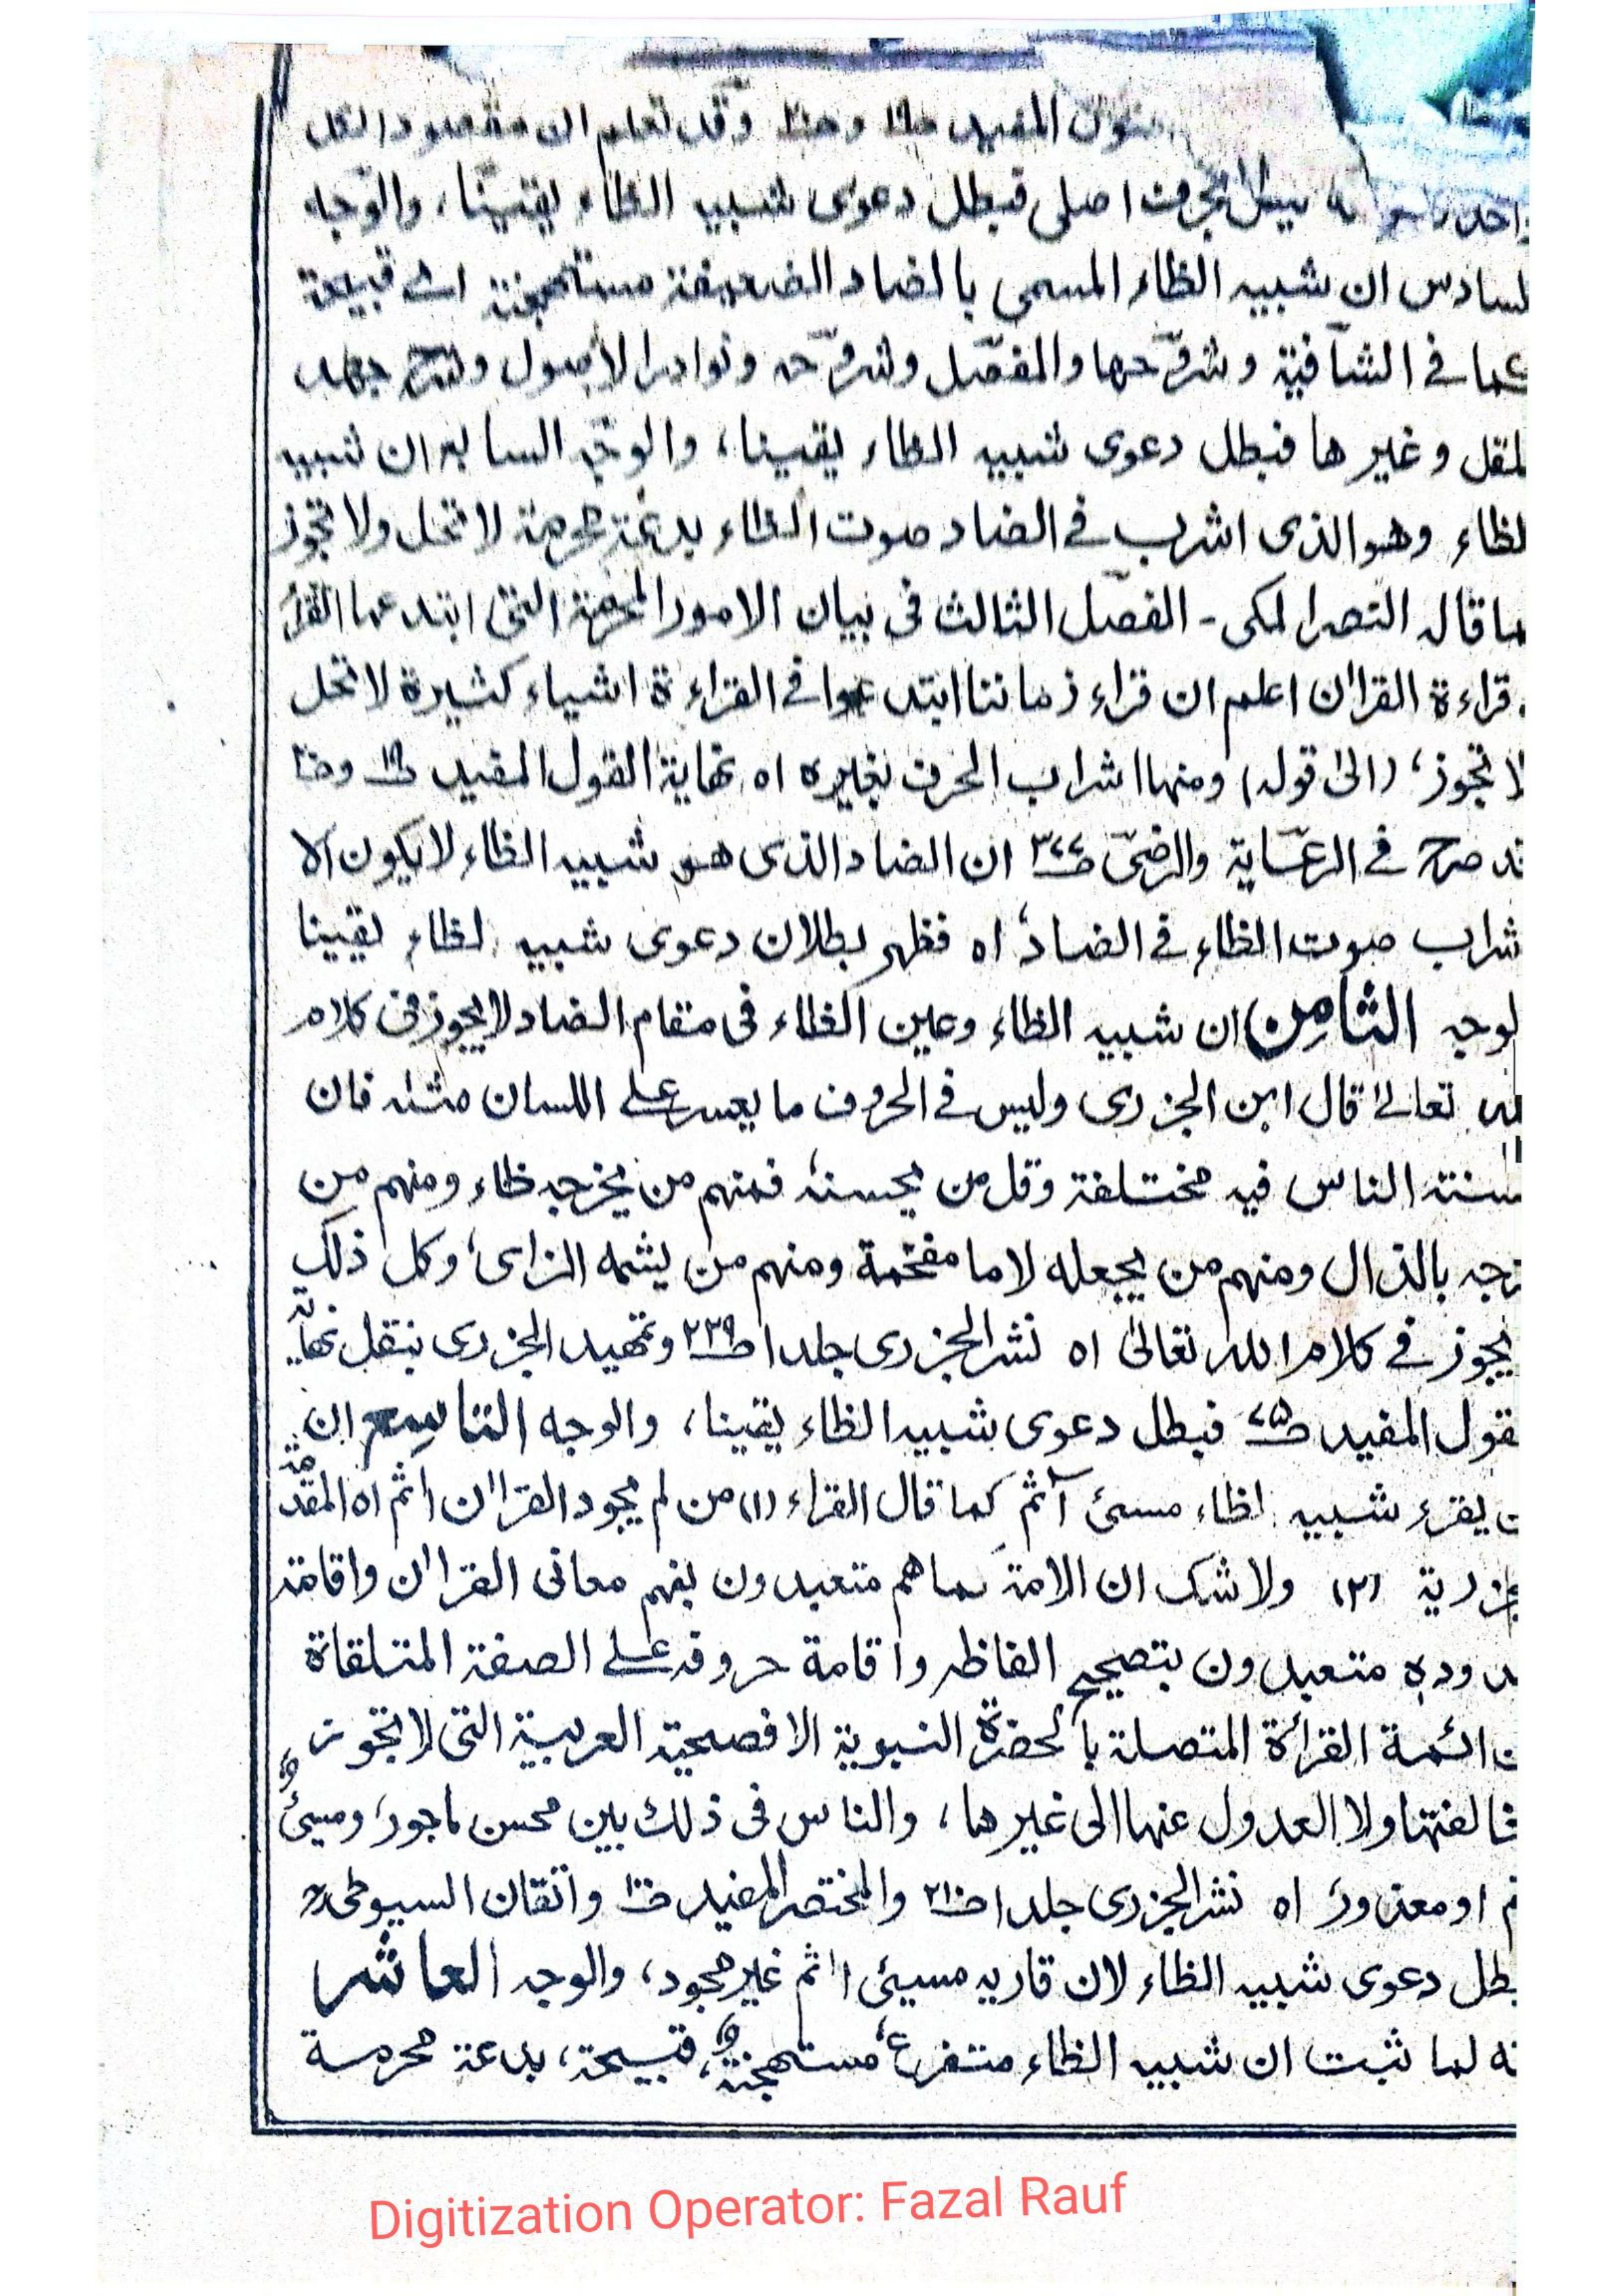 المفيد وقد تعلم ان مقصود الكل
اصلى فبطل دعوى شبيه الظاء يقينا، والوجه
لسادس ان شبيه الظاء المسمى بالضاد الضعيفة مستهجنة اى قبيحة
كما فى الشافية وشروحها والمفصل وشروحه ونوادر الاصول وشرح جهد
لمقل وغيرها فبطل دعوى شبيه الظاء يقينا، والوجه السابع ان شبيه
لظاء وهو الذى اشرب فى الضاد صوت الظاء بدعة محرمة لا تحل ولا تجوز
ما قاله النصر المكى - الفصل الثالث فى بيان الامور المحرمة التى ابتدعها القراء
قراءة القراٰن اعلم ان قراء زماننا ابتدعوا فى القراءة اشياء كثيرة لا تحل
لا تجوز، (الى قوله) ومنها اشراب الحرف بغيره اه نهاية القول المفيد
صرح فى الرعاية والرضى ان الضاد الذى هو شبيه الظاء لا يكون الا
شراب صوت الظاء فى الضاد اه فظهر بطلان دعوى شبيه لظاء يقينا
لوجه الثامن ان شبيه الظاء وعين الظاء فى مقام الضاد لا يجوز فى كلام
لله تعالىٰ قال ابن الجزرى وليس فى الحروف ما يعسر على اللسان مثله فان
سنته الناس فيه مختلفة وقل من يحسنه فمنهم من يخرجه ظاء ومنهم من
زجه بالذال ومنهم من يجعله لاما مفخمة ومنهم من يشمه الزاى، وكل ذلك
يجوز فى كلام الله تعالىٰ اه نشر الجزرى جلد ا ص٢٣٩ وتمهيد الجزرى بنقل نهاية
لقول المفيد ص٧٥ فبطل دعوى شبيه الظاء يقينا، والوجه التاسع ان
ن يقرء شبيه لظاء مسئ آثم كما قال القراء (١) من لم يجود القراٰن اٰثم اه المقدمة
جزرية (٢) ولا شك ان الامة كما هم متعبدون بفهم معانى القراٰن واقامة
دوده متعبدون بتصحيح الفاظه واقامة حروفه على الصفة المتلقاة
ن ائمة القرأة المتصلة بالحضرة النبوية الافصحية العربية التى لا يجوز
خالفتها ولا العدول عنها الى غيرها، والناس فى ذلك بين محسن ماجور، ومسئ
ثم او معذور اه نشر الجزرى جلد ا ص٢١٠ والمختصر المفيد واتقان السيوطى
بطل دعوى شبيه الظاء لان قاريه مسيئ اٰثم غير مجود، والوجه العاشر
نه لما ثبت ان شبيه الظاء متفرع، مستهجنة، قبيحة، بدعة محرمة
Digitization Operator: Fazal Rauf